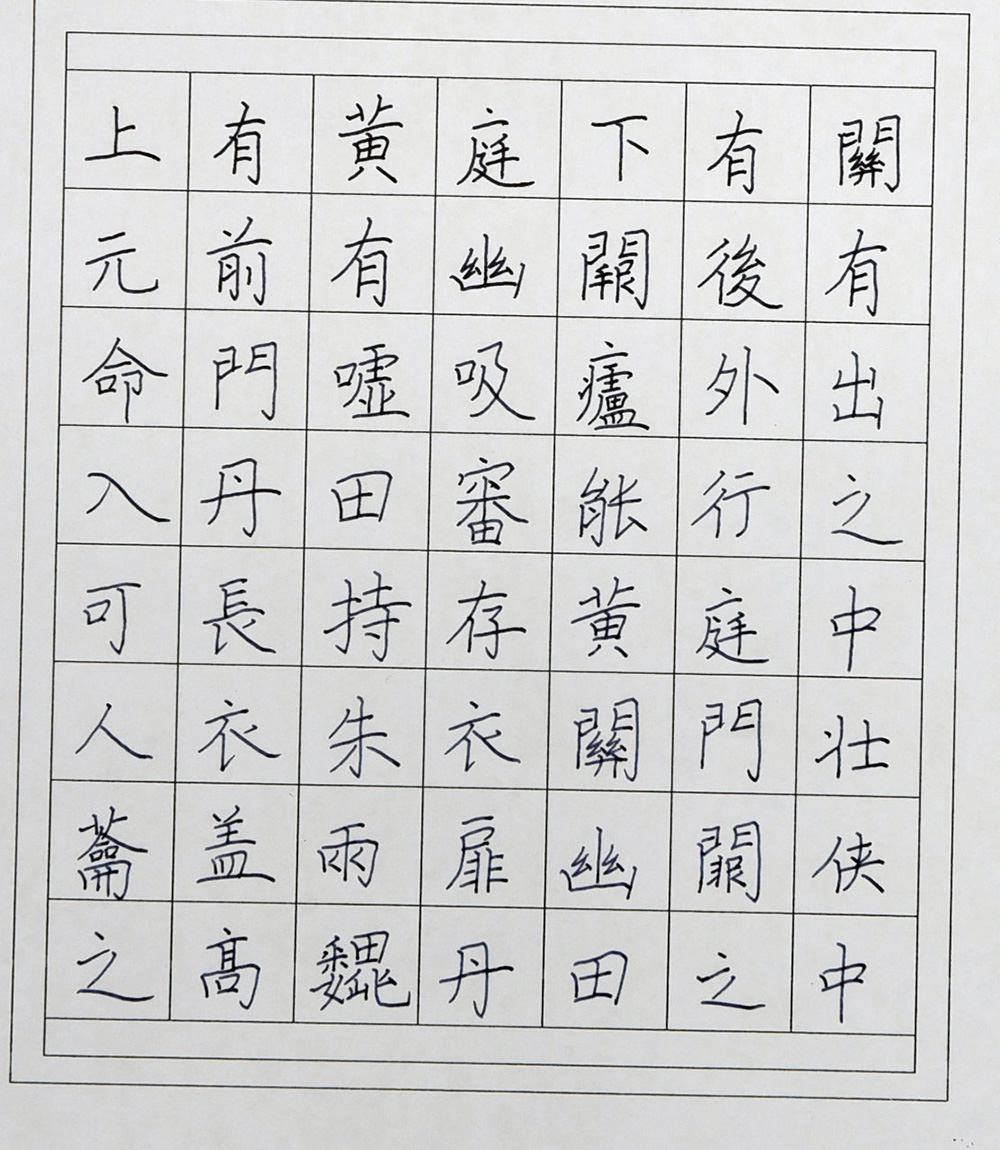 上有黄庭下有關
元前有幽闕後有
命門噓吸廬外出
入丹田審能行之
可長持存黄庭中
人衣朱衣關門壯
蘥盖兩扉幽闕俠
之高魏丹田之中